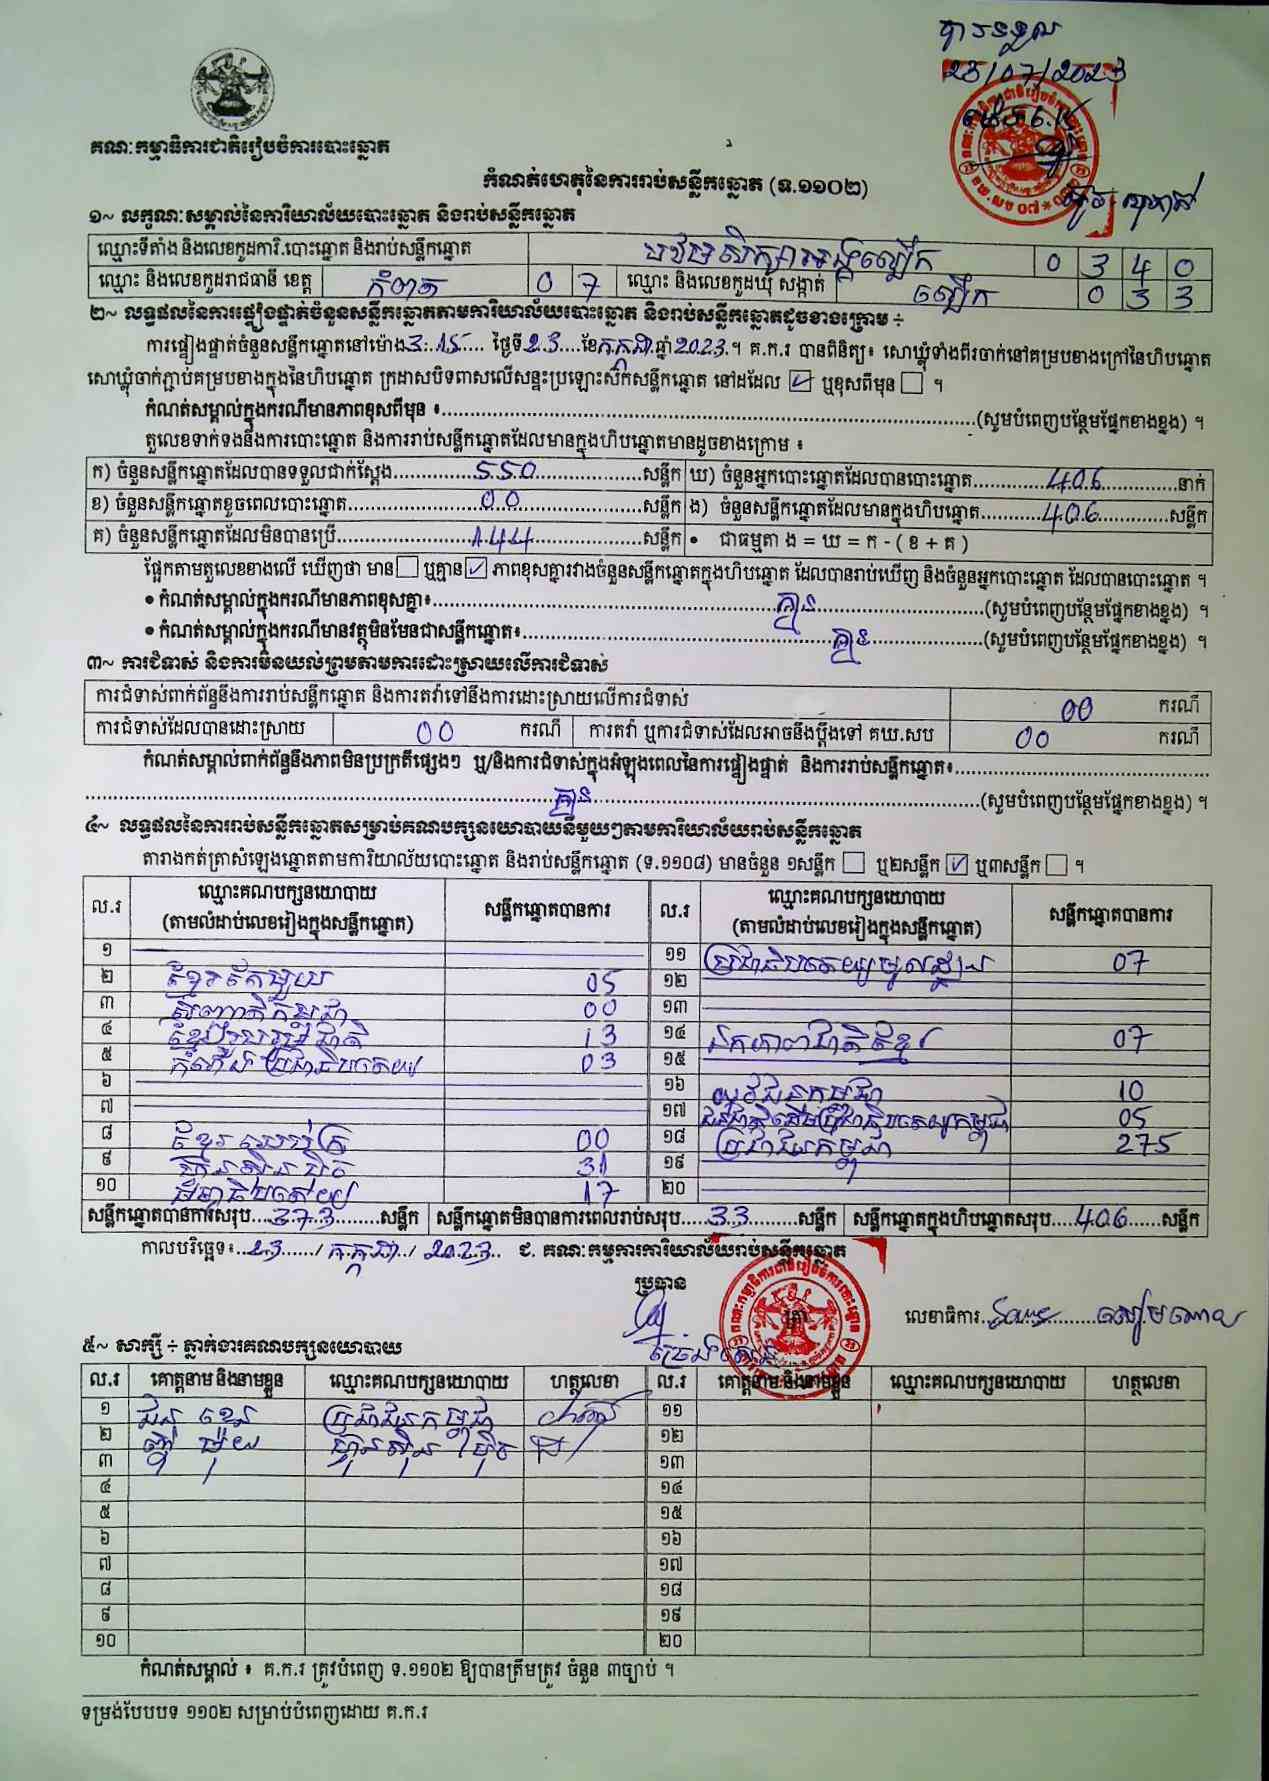 បានទទួល
23/07/2023
គណៈកម្មាធិការជាតិរៀបចំការបោះឆ្នោត
កំណត់ហេតុនៃការរាប់សន្លឹកឆ្នោត (ទ.១១០២)
១~ លក្ខណៈសម្គាល់នៃការិយាល័យបោះឆ្នោត និងរាប់សន្លឹកឆ្នោត
ឈ្មោះទីតាំង និងលេខកូដការិ.បោះឆ្នោត និងរាប់សន្លឹកឆ្នោត បឋមសិក្សាអង្គល្បើក 0 3 4 0
ឈ្មោះ និងលេខកូដរាជធានី ខេត្ត កំពត 0 7 ឈ្មោះ និងលេខកូដឃុំ សង្កាត់ ល្បើក 0 3 3
២~ លទ្ធផលនៃការផ្ទៀងផ្ទាត់ចំនួនសន្លឹកឆ្នោតតាមការិយាល័យបោះឆ្នោត និងរាប់សន្លឹកឆ្នោតដូចខាងក្រោម ÷
ការផ្ទៀងផ្ទាត់ចំនួនសន្លឹកឆ្នោតនៅម៉ោង3:15..... ថ្ងៃទី23....ខែកក្កដា.ឆ្នាំ2023.។ គ.ក.រ បានពិនិត្យ៖ សោឃ្លុំទាំងពីរចាក់នៅគម្របខាងក្រៅនៃហិបឆ្នោត
សោឃ្លុំចាក់ភ្ជាប់គម្របខាងក្នុងនៃហិបឆ្នោត ក្រដាសបិទពាសលើសន្ទះប្រឡោះស៊កសន្លឹកឆ្នោត នៅដដែល ☑ ឬខុសពីមុន ☐ ។
កំណត់សម្គាល់ក្នុងករណីមានភាពខុសពីមុន ៖..........(សូមបំពេញបន្ថែមផ្នែកខាងខ្នង) ។
តួលេខទាក់ទងនឹងការបោះឆ្នោត និងការរាប់សន្លឹកឆ្នោតដែលមានក្នុងហិបឆ្នោតមានដូចខាងក្រោម ៖
ក) ចំនួនសន្លឹកឆ្នោតដែលបានទទួលជាក់ស្តែង..........550..........សន្លឹក ឃ) ចំនួនអ្នកបោះឆ្នោតដែលបានបោះឆ្នោត..........406..........នាក់
ខ) ចំនួនសន្លឹកឆ្នោតខូចពេលបោះឆ្នោត..........00..........សន្លឹក ង) ចំនួនសន្លឹកឆ្នោតដែលមានក្នុងហិបឆ្នោត..........406..........សន្លឹក
គ) ចំនួនសន្លឹកឆ្នោតដែលមិនបានប្រើ..........144..........សន្លឹក • ជាធម្មតា ង = ឃ = ក - ( ខ + គ )
ផ្អែកតាមតួលេខខាងលើ ឃើញថា មាន ☐ ឬគ្មាន ☑ ភាពខុសគ្នារវាងចំនួនសន្លឹកឆ្នោតក្នុងហិបឆ្នោត ដែលបានរាប់ឃើញ និងចំនួនអ្នកបោះឆ្នោត ដែលបានបោះឆ្នោត ។
• កំណត់សម្គាល់ក្នុងករណីមានភាពខុសគ្នា៖..........គ្មាន..........(សូមបំពេញបន្ថែមផ្នែកខាងខ្នង) ។
• កំណត់សម្គាល់ក្នុងករណីមានវត្ថុមិនមែនជាសន្លឹកឆ្នោត៖..........គ្មាន..........(សូមបំពេញបន្ថែមផ្នែកខាងខ្នង) ។
៣~ ការជំទាស់ និងការមិនយល់ព្រមតាមការដោះស្រាយលើការជំទាស់
ការជំទាស់ពាក់ព័ន្ធនឹងការរាប់សន្លឹកឆ្នោត និងការតវ៉ាទៅនឹងការដោះស្រាយលើការជំទាស់ 00 ករណី
ការជំទាស់ដែលបានដោះស្រាយ 00 ករណី ការតវ៉ា ឬការជំទាស់ដែលអាចនឹងប្តឹងទៅ គឃ.សប 00 ករណី
កំណត់សម្គាល់ពាក់ព័ន្ធនឹងភាពមិនប្រក្រតីផ្សេងៗ ឬ/និងការជំទាស់ក្នុងអំឡុងពេលនៃការផ្ទៀងផ្ទាត់ និងការរាប់សន្លឹកឆ្នោត៖..........
..........គ្មាន..........(សូមបំពេញបន្ថែមផ្នែកខាងខ្នង) ។
៤~ លទ្ធផលនៃការរាប់សន្លឹកឆ្នោតសម្រាប់គណបក្សនយោបាយនីមួយៗតាមការិយាល័យរាប់សន្លឹកឆ្នោត
តារាងកត់ត្រាសំឡេងឆ្នោតតាមការិយាល័យបោះឆ្នោត និងរាប់សន្លឹកឆ្នោត (ទ.១១០៨) មានចំនួន ១សន្លឹក ☐ ឬ២សន្លឹក ☑ ឬ៣សន្លឹក ☐ ។
ល.រ ឈ្មោះគណបក្សនយោបាយ (តាមលំដាប់លេខរៀងក្នុងសន្លឹកឆ្នោត) សន្លឹកឆ្នោតបានការ ល.រ ឈ្មោះគណបក្សនយោបាយ (តាមលំដាប់លេខរៀងក្នុងសន្លឹកឆ្នោត) សន្លឹកឆ្នោតបានការ
១ ១១ ប្រជាធិបតេយ្យមូលដ្ឋាន 07
២ ខ្មែរតែមួយ 05 ១២
៣ សញ្ជាតិកម្ពុជា 00 ១៣
៤ ខ្មែររួបរួមជាតិ 13 ១៤ ឯកភាពជាតិខ្មែរ 07
៥ កម្លាំងប្រជាធិបតេយ្យ 03 ១៥
៦ ១៦ យុវជនកម្ពុជា 10
៧ ១៧ ជនជាតិដើមប្រជាធិបតេយ្យកម្ពុជា 05
៨ ខ្មែរឈប់ក្រ 00 ១៨ ប្រជាជនកម្ពុជា 275
៩ ហ្វ៊ុនស៊ិនប៉ិច 31 ១៩
១០ ធម្មាធិបតេយ្យ 17 ២០
សន្លឹកឆ្នោតបានការសរុប....373........សន្លឹក សន្លឹកឆ្នោតមិនបានការពេលរាប់សរុប.....33.........សន្លឹក សន្លឹកឆ្នោតក្នុងហិបឆ្នោតសរុប....406......សន្លឹក
កាលបរិច្ឆេទ៖..23....../ កក្កដា./ 2023.. ជ. គណៈកម្មការការិយាល័យរាប់សន្លឹកឆ្នោត
ប្រធាន
លេខាធិការ
៥~ សាក្សី ÷ ភ្នាក់ងារគណបក្សនយោបាយ
ល.រ គោត្តនាម និងនាមខ្លួន ឈ្មោះគណបក្សនយោបាយ ហត្ថលេខា ល.រ គោត្តនាម និងនាមខ្លួន ឈ្មោះគណបក្សនយោបាយ ហត្ថលេខា
១ ប្រជាជនកម្ពុជា ១១
២ ហ្វ៊ុនស៊ិនប៉ិច ១២
៣ ១៣
៤ ១៤
៥ ១៥
៦ ១៦
៧ ១៧
៨ ១៨
៩ ១៩
១០ ២០
កំណត់សម្គាល់ ៖ គ.ក.រ ត្រូវបំពេញ ទ.១១០២ ឱ្យបានត្រឹមត្រូវ ចំនួន ៣ច្បាប់ ។
ទម្រង់បែបបទ ១១០២ សម្រាប់បំពេញដោយ គ.ក.រ